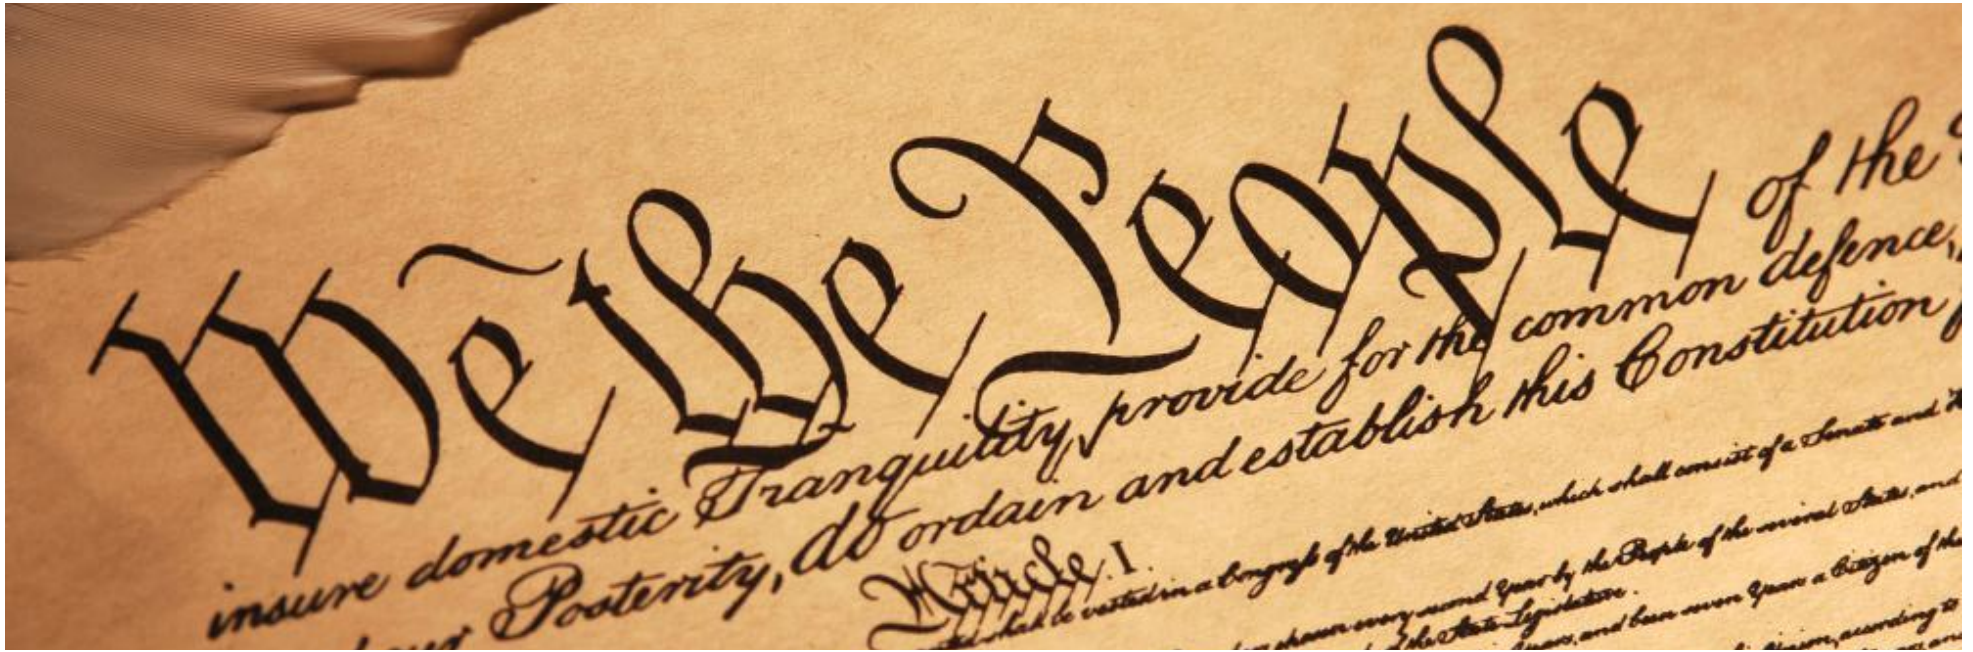 We the People of the
insure domestic Tranquility, provide for the common defence,
our Posterity, do ordain and establish this Constitution
Article. I.
shall be vested in a Congress of the United States, which shall consist of a Senate and
chosen every second Year by the People of the several States, and
of the State Legislature.
Years, and been seven Years a Citizen of the
Union, according to